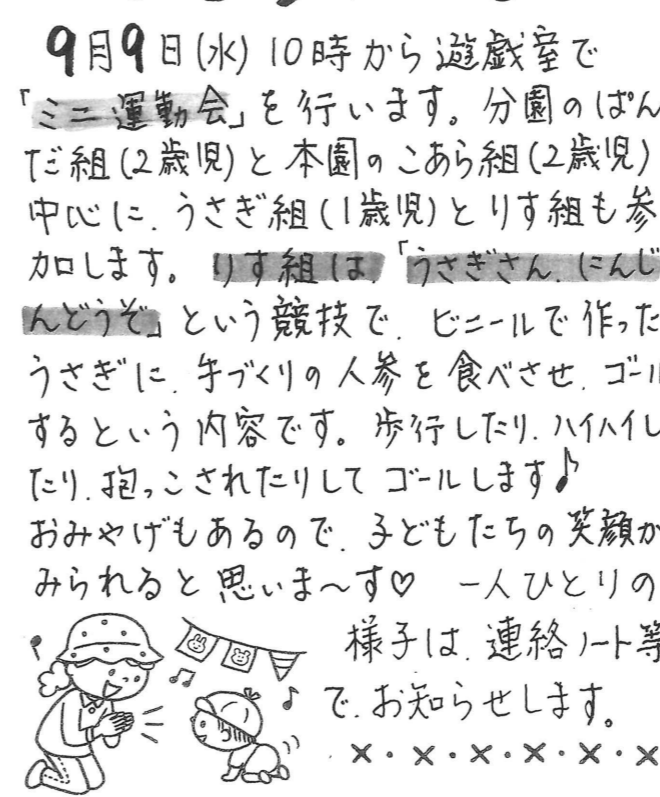 9月9日(水)10時から遊戯室で
「ミニ運動会」を行います。分園のぱん
だ組(2歳児)と本園のこあら組(2歳児)
中心に、うさぎ組(1歳児)とりす組も参
加します。りす組は、「うさぎさん、にんじ
んどうぞ」という競技で、ビニールで作った
うさぎに、手づくりの人参を食べさせ、ゴール
するという内容です。歩行したり、ハイハイし
たり、抱っこされたりしてゴールします♪
おみやげもあるので、子どもたちの笑顔が
みられると思いま〜す♡ 一人ひとりの
様子は、連絡ノート等
で、お知らせします。